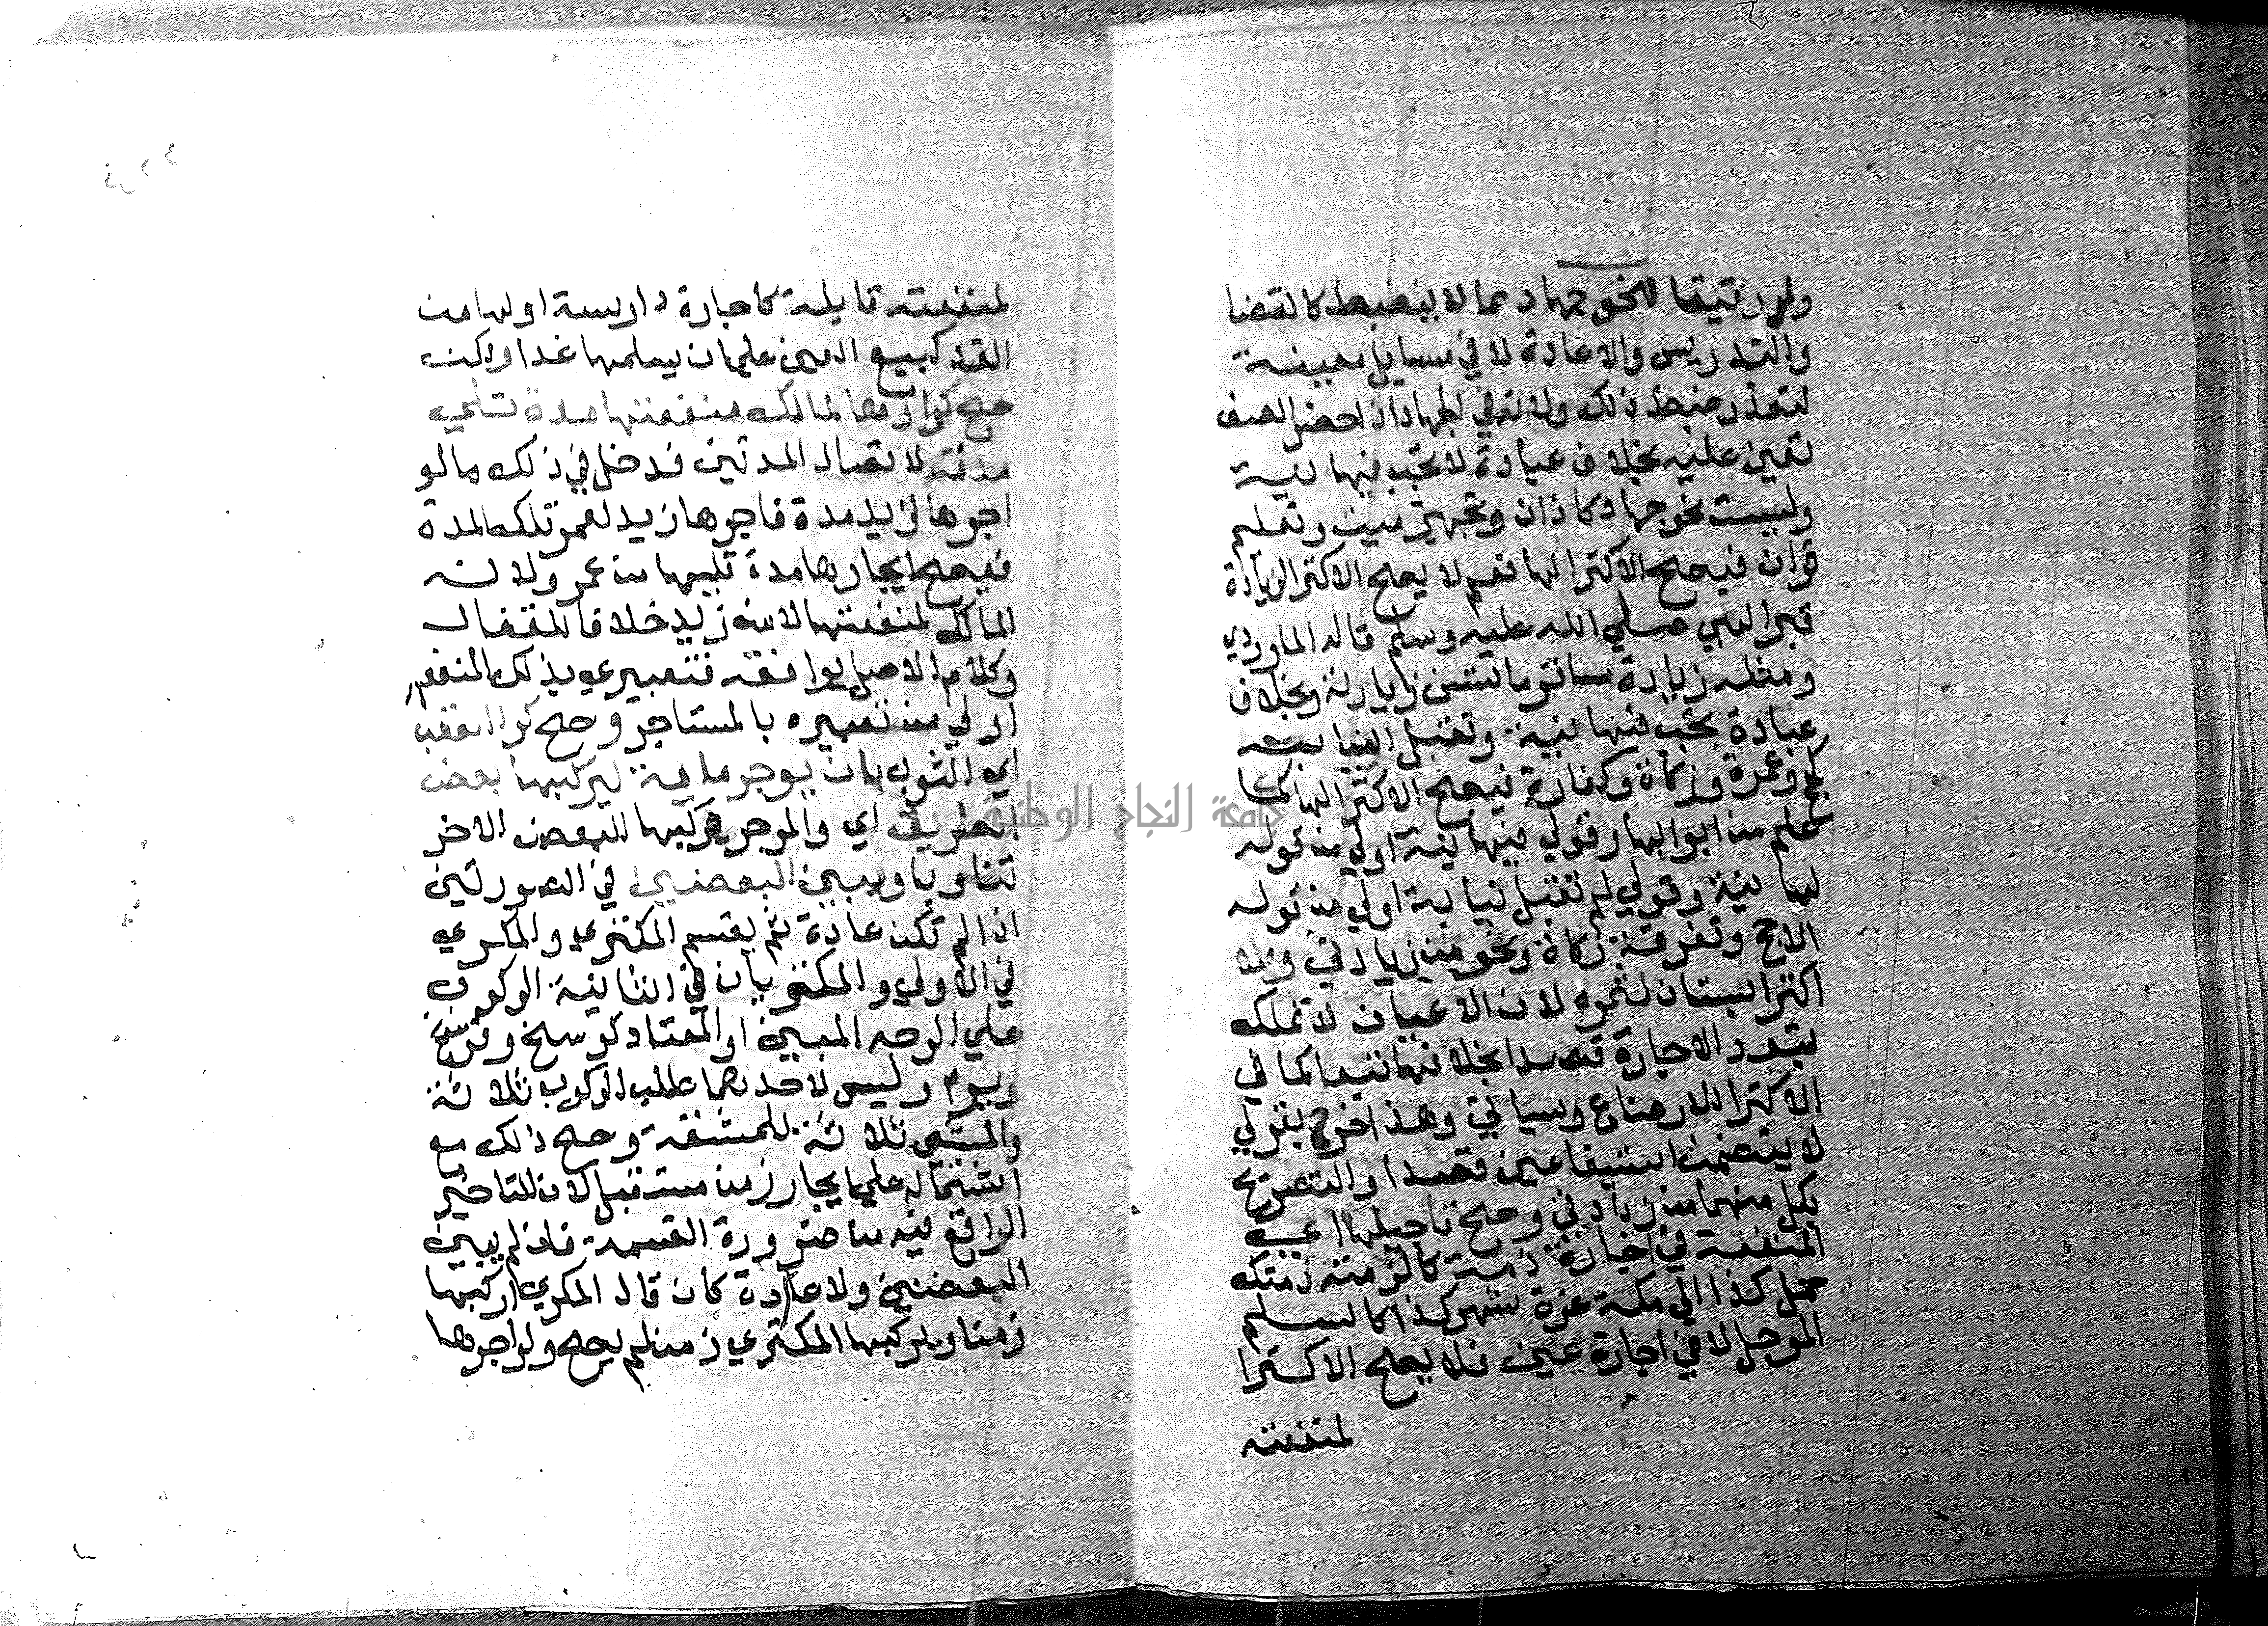 ولو رقيقا لنحو جهاد مما لا ينضبط كالقضا
والتدريس والاعادة لا في مسايل معينة
لتعذر ضبط ذلك ولانه في الجهاد اذا حضر الصف
تعين عليه بخلاف عبادة لا تجب فيها نية
وليست نحو جهاد كاذان وتجهيز ميت وتعليم
قران فيصح الاكترا لها نعم لا يصح الاكترا لزيارة
قبر النبي صلي الله عليه وسلم قاله الماوردي
ومثله زيارة ساير ما تسن زيارته وبخلاف
عبادة تجب فيها نية وتقبل النيابة
كحج وعمرة وزكاة وكفارة فيصح الاكترا لها كما
علم من ابوابها وقولي فيها نية اولي من قوله
لها نية وقولي لم تقبل نيابة اولي من قوله
الا حج وتفرقة زكاة ونحو من زيادتي ولا
اكترا بستان لثمره لان الاعيان لا تملك
بعقد الاجارة قصدا بخلافها تبعا كما في
الاكترا للارضاع وسياتي وهذا خرج بقولي
لا يتضمن استيفا عين قصدا والتصريح
بكل منهما من زيادتي وصح تاجيلها اي
المنفعة في اجارة ذمة كالزمت ذمتك
حمل كذا الي مكة غرة شهر كذا كالسلم
الموجل لا في اجارة عين فلا يصح الاكترا
لمنفعته
لمنفعته قابلة كاجارة دار سنة اولها من
الغد كبيع العين علي ان يسلمها غدا ولكن
صح كراوها لمالك منفعتها مدة تلي
مدته لاتصال المدتين فدخل في ذلك ما لو
اجرها لزيد مدة فاجرها زيد لعمرو تلك المدة
فيصح ايجارها مدة تليها من عمرو لانه
المالك لمنفعتها لا من زيد خلافا للقفال
وكلام الاصل يوافقه فتعبيري بذلك المنفعة
اولي من تعبيره بالمستاجر وصح كرا العقب
اي النوب بان يوجر دابة ليركبها بعض
الطريق اي والموجر يركبها البعض الاخر
تناوبا ويبين البعضين في الصورتين
اذا لم تكن عادة ثم يقتسم المكتري والمكري
في الاولي والمكتريان في الثانية الركوب
علي الوجه المبين او المعتاد كفرسخ وفرسخ
ويوم وليس لاحدهما طلب الركوب ثلاثة
والمشي ثلاثة للمشقة وصح ذلك مع
اشتماله علي ايجار زمن مستقبل لان التاخير
الواقع فيه من ضرورة القسمة فان لم يبين
البعضين ولا عادة كان قال المكري اركبها
زمنا ويركبها المكتري زمنا لم يصح ولو اجرها
جامعة النجاح الوطنية